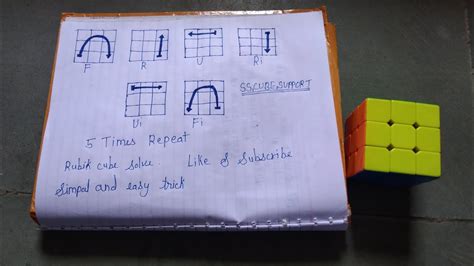 F R U Ri
Ui Fi SSCUBE SUPPORT
5 Times Repeat
Rubik cube solve. Like & Subscribe
Simpal and easy trick